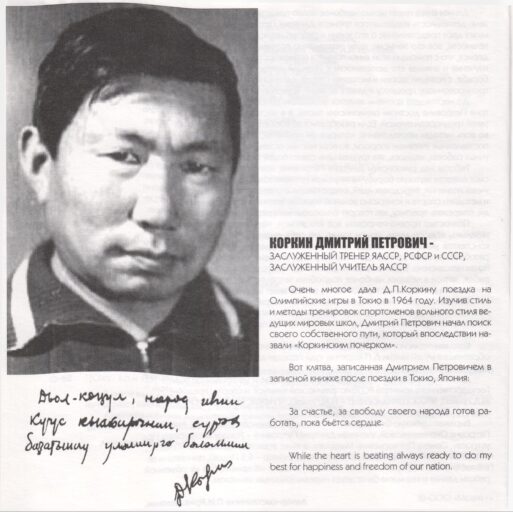 КОРКИН ДМИТРИЙ ПЕТРОВИЧ -
ЗАСЛУЖЕННЫЙ ТРЕНЕР ЯАССР, РСФСР и СССР,
ЗАСЛУЖЕННЫЙ УЧИТЕЛЬ ЯАССР
Очень многое дала Д.П.Коркину поездка на
Олимпийские игры в Токио в 1964 году. Изучив стиль
и методы тренировок спортсменов вольного стиля ве-
дущих мировых школ, Дмитрий Петрович начал поиск
своего собственного пути, который впоследствии на-
звали «Коркинским почерком».
Вот клятва, записанная Дмитрием Петровичем в
записной книжке после поездки в Токио, Япония:
За счастье, за свободу своего народа готов ра-
ботать, пока бьётся сердце.
While the heart is beating always ready to do my
best for happiness and freedom of our nation.
народ